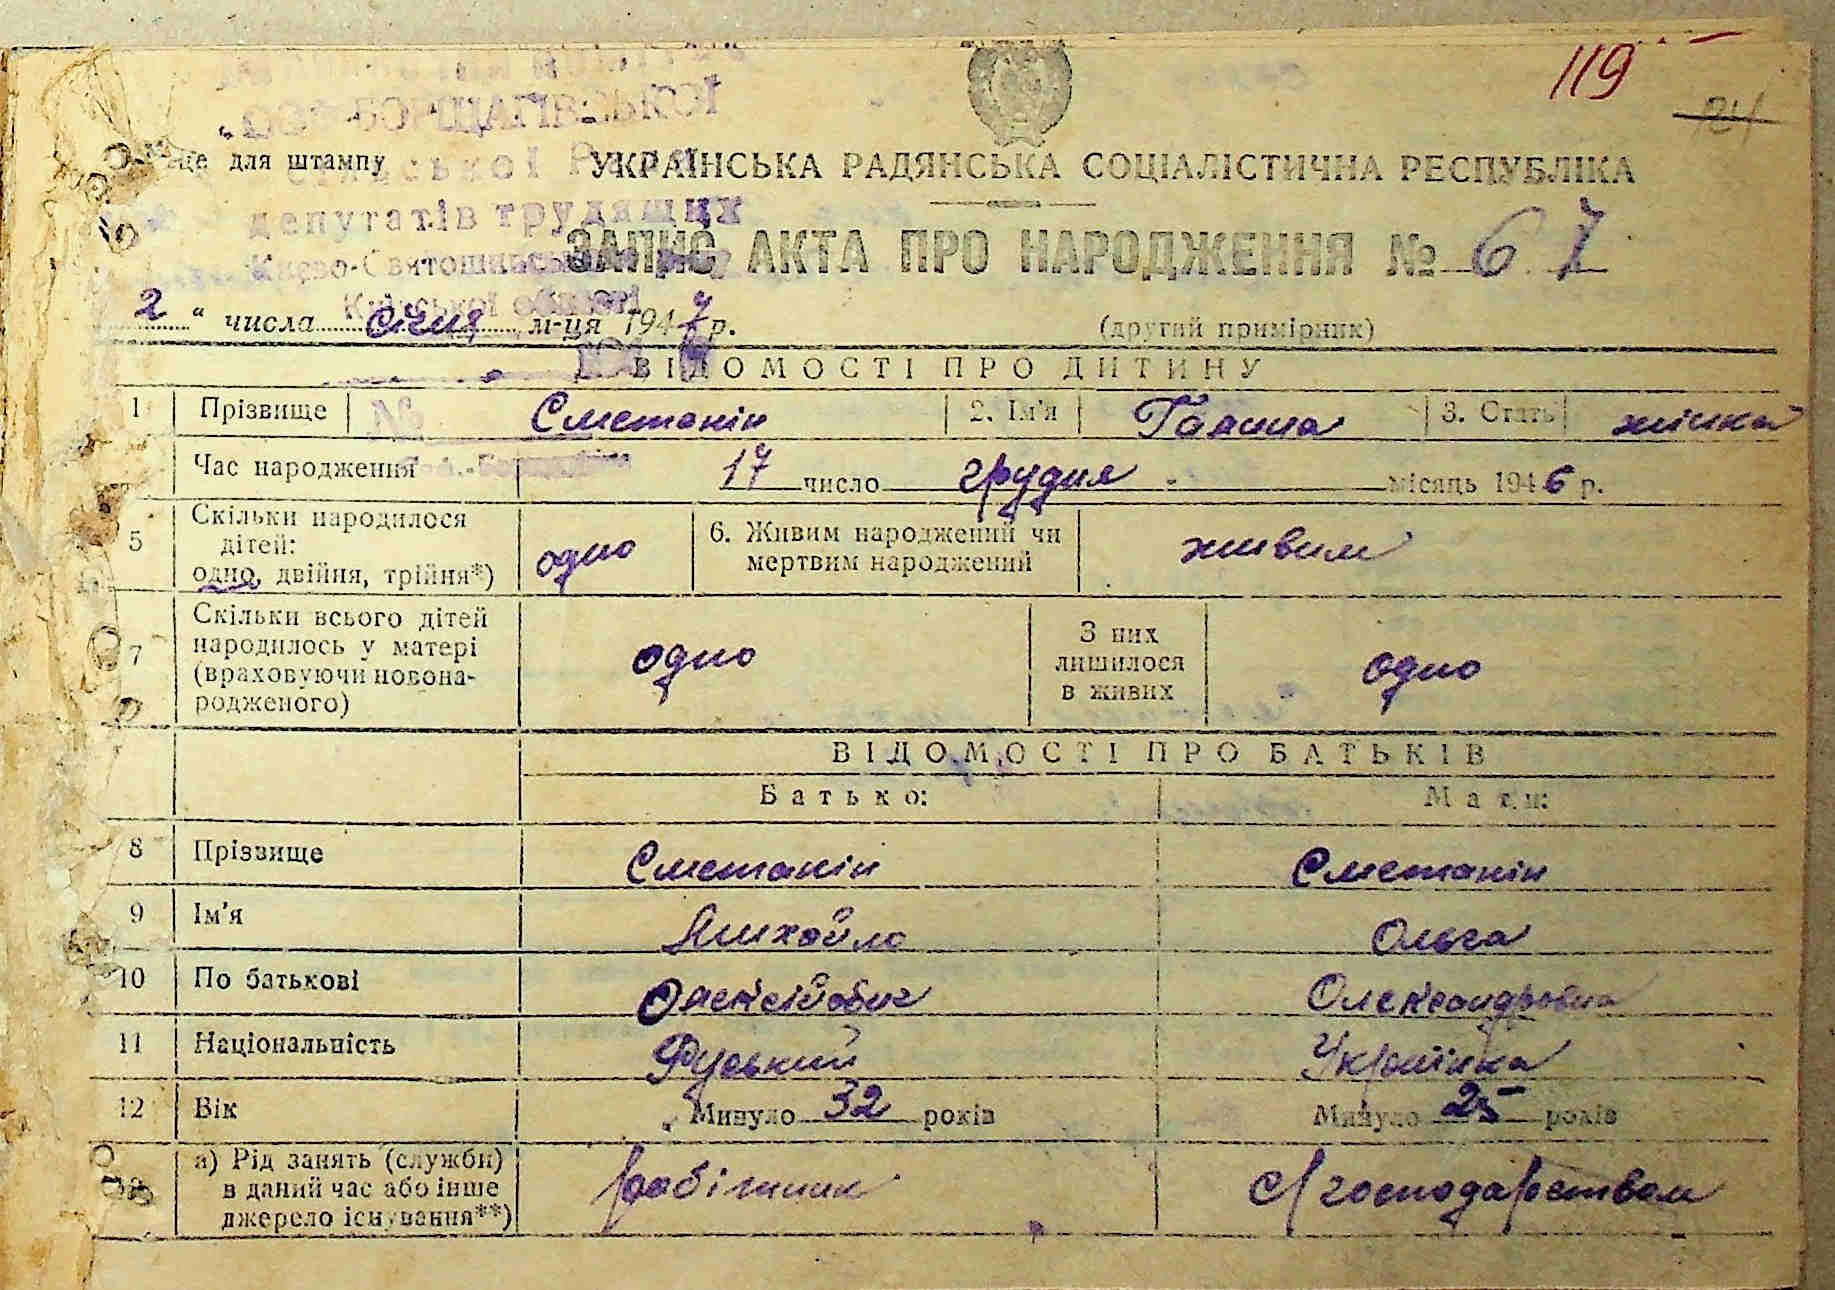 119
124
Місце для штампу
УКРАЇНСЬКА РАДЯНСЬКА СОЦІАЛІСТИЧНА РЕСПУБЛІКА
депутатів трудящих
ЗАПИС АКТА ПРО НАРОДЖЕННЯ № 67
Києво-Святошинського
Київської області
2 " числа січня м-ця 1947 р.
(другий примірник)
ВІДОМОСТІ ПРО ДИТИНУ
1 Прізвище Сметанін 2. Ім'я Галина 3. Стать жіноча
№
Час народження 17 число грудня місяць 1946 р.
5 Скільки народилося дітей:
одно, двійня, трійня*) одно 6. Живим народжений чи
мертвим народжений живим
7 Скільки всього дітей
народилось у матері
(враховуючи новона-
родженого) одно З них
лишилося
в живих одно
ВІДОМОСТІ ПРО БАТЬКІВ
Батько: Мати:
8 Прізвище Сметанін Сметанін
9 Ім'я Михайло Ольга
10 По батькові Олексійович Олександровна
11 Національність Руський Українка
12 Вік Минуло 32 років Минуло 25 років
13 а) Рід занять (служби)
в даний час або інше
джерело існування**) робітник с/господарством